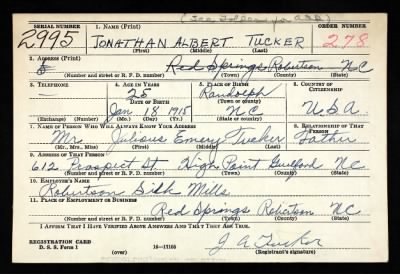 (See Folder for ADD)
SERIAL NUMBER
1. NAME (Print)
ORDER NUMBER
2995
JONATHAN ALBERT TUCKER
278
(First) (Middle) (Last)
2. ADDRESS (Print)
Red Springs Robertson NC
(Number and street or R. F. D. number) (Town) (County) (State)
3. TELEPHONE
4. AGE IN YEARS
5. PLACE OF BIRTH
6. COUNTRY OF CITIZENSHIP
25
Randolph
DATE OF BIRTH
(Town or county)
Jan 18 1915
N.C.
U.S.A.
(Exchange) (No.)
(Mo.) (Day) (Yr.)
(State or country)
7. NAME OF PERSON WHO WILL ALWAYS KNOW YOUR ADDRESS
8. RELATIONSHIP OF THAT PERSON
Mr Julious Emery Tucker Father
(Mr., Mrs., Miss) (First) (Middle) (Last)
9. ADDRESS OF THAT PERSON
612 Prospect St High Point Guilford NC
(Number and street or R. F. D. number) (Town) (County) (State)
10. EMPLOYER'S NAME
Robertson Silk Mills
11. PLACE OF EMPLOYMENT OR BUSINESS
Red Springs Robertson NC.
(Number and street or R. F. D. number) (Town) (County) (State)
I AFFIRM THAT I HAVE VERIFIED ABOVE ANSWERS AND THAT THEY ARE TRUE.
REGISTRATION CARD
D. S. S. Form 1
(over)
16—17105
J A Tucker
(Registrant's signature)